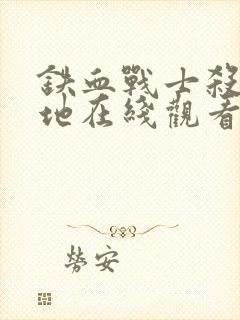 鐵血戰士殺
地在綫觀看
勞安